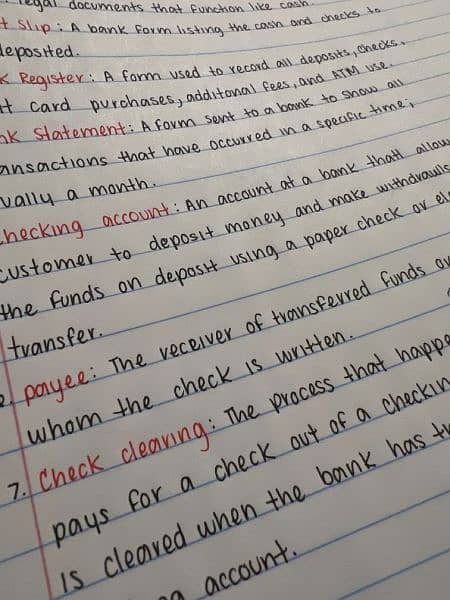 legal documents that function like cash.
t slip: A bank form listing the cash and checks to
deposited.
k Register: A form used to record all deposits, checks,
t card purchases, additonal fees, and ATM use.
nk statement: A form sent to a bank to show all
ansactions that have occurred in a specific time,
ually a month.
hecking account: An account at a bank thatt allow
customer to deposit money and make withdrawls
the funds on deposit using a paper check or el
transfer.
payee: The receiver of transferred funds or
whom the check is written.
7. Check clearing: The process that happe
pays for a check out of a checkin
is cleared when the bank has tr
account.